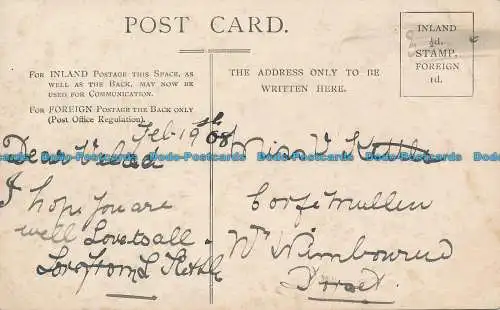 POST CARD.
FOR INLAND POSTAGE THIS SPACE, AS
WELL AS THE BACK, MAY NOW BE
USED FOR COMMUNICATION.
FOR FOREIGN POSTAGE THE BACK ONLY
(Post Office Regulation).
THE ADDRESS ONLY TO BE
WRITTEN HERE.
INLAND
½d.
STAMP.
FOREIGN
1d.
Feb 19th 08
Dear
I hope you are
well Love to all
Love from L Kettle
Miss V Kettle
Corfe Mullen
Nr Wimbourne
Dorset